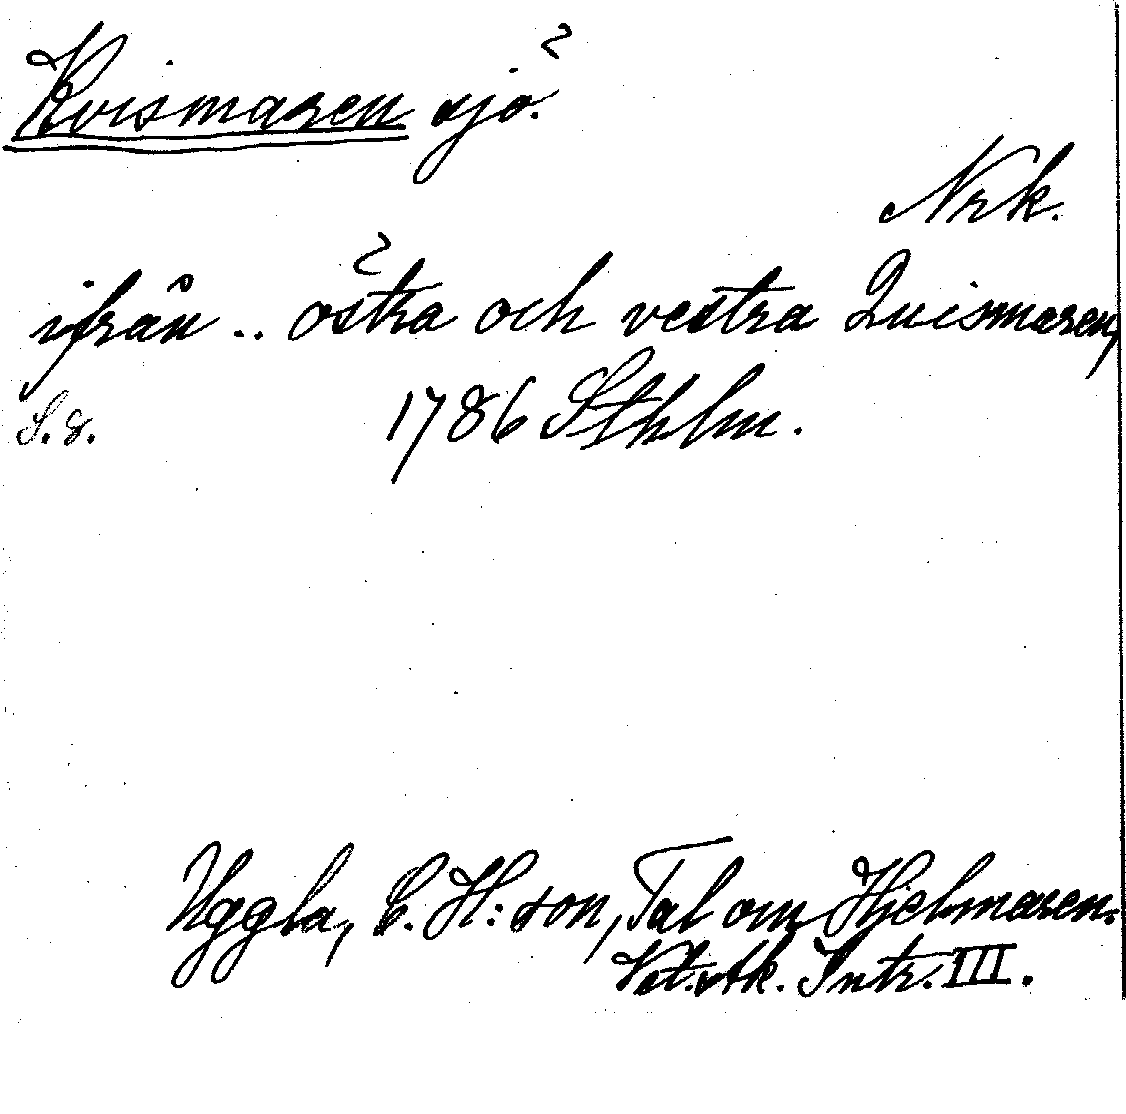 Kvismaren sjö.
Nrk.
ifrån .. östra och vestra Quismaren,
S. 8. 1786 Sthlm.
Uggla, C. H:son, Tal om Hjelmaren.
Vet. Ak. Intr. III.